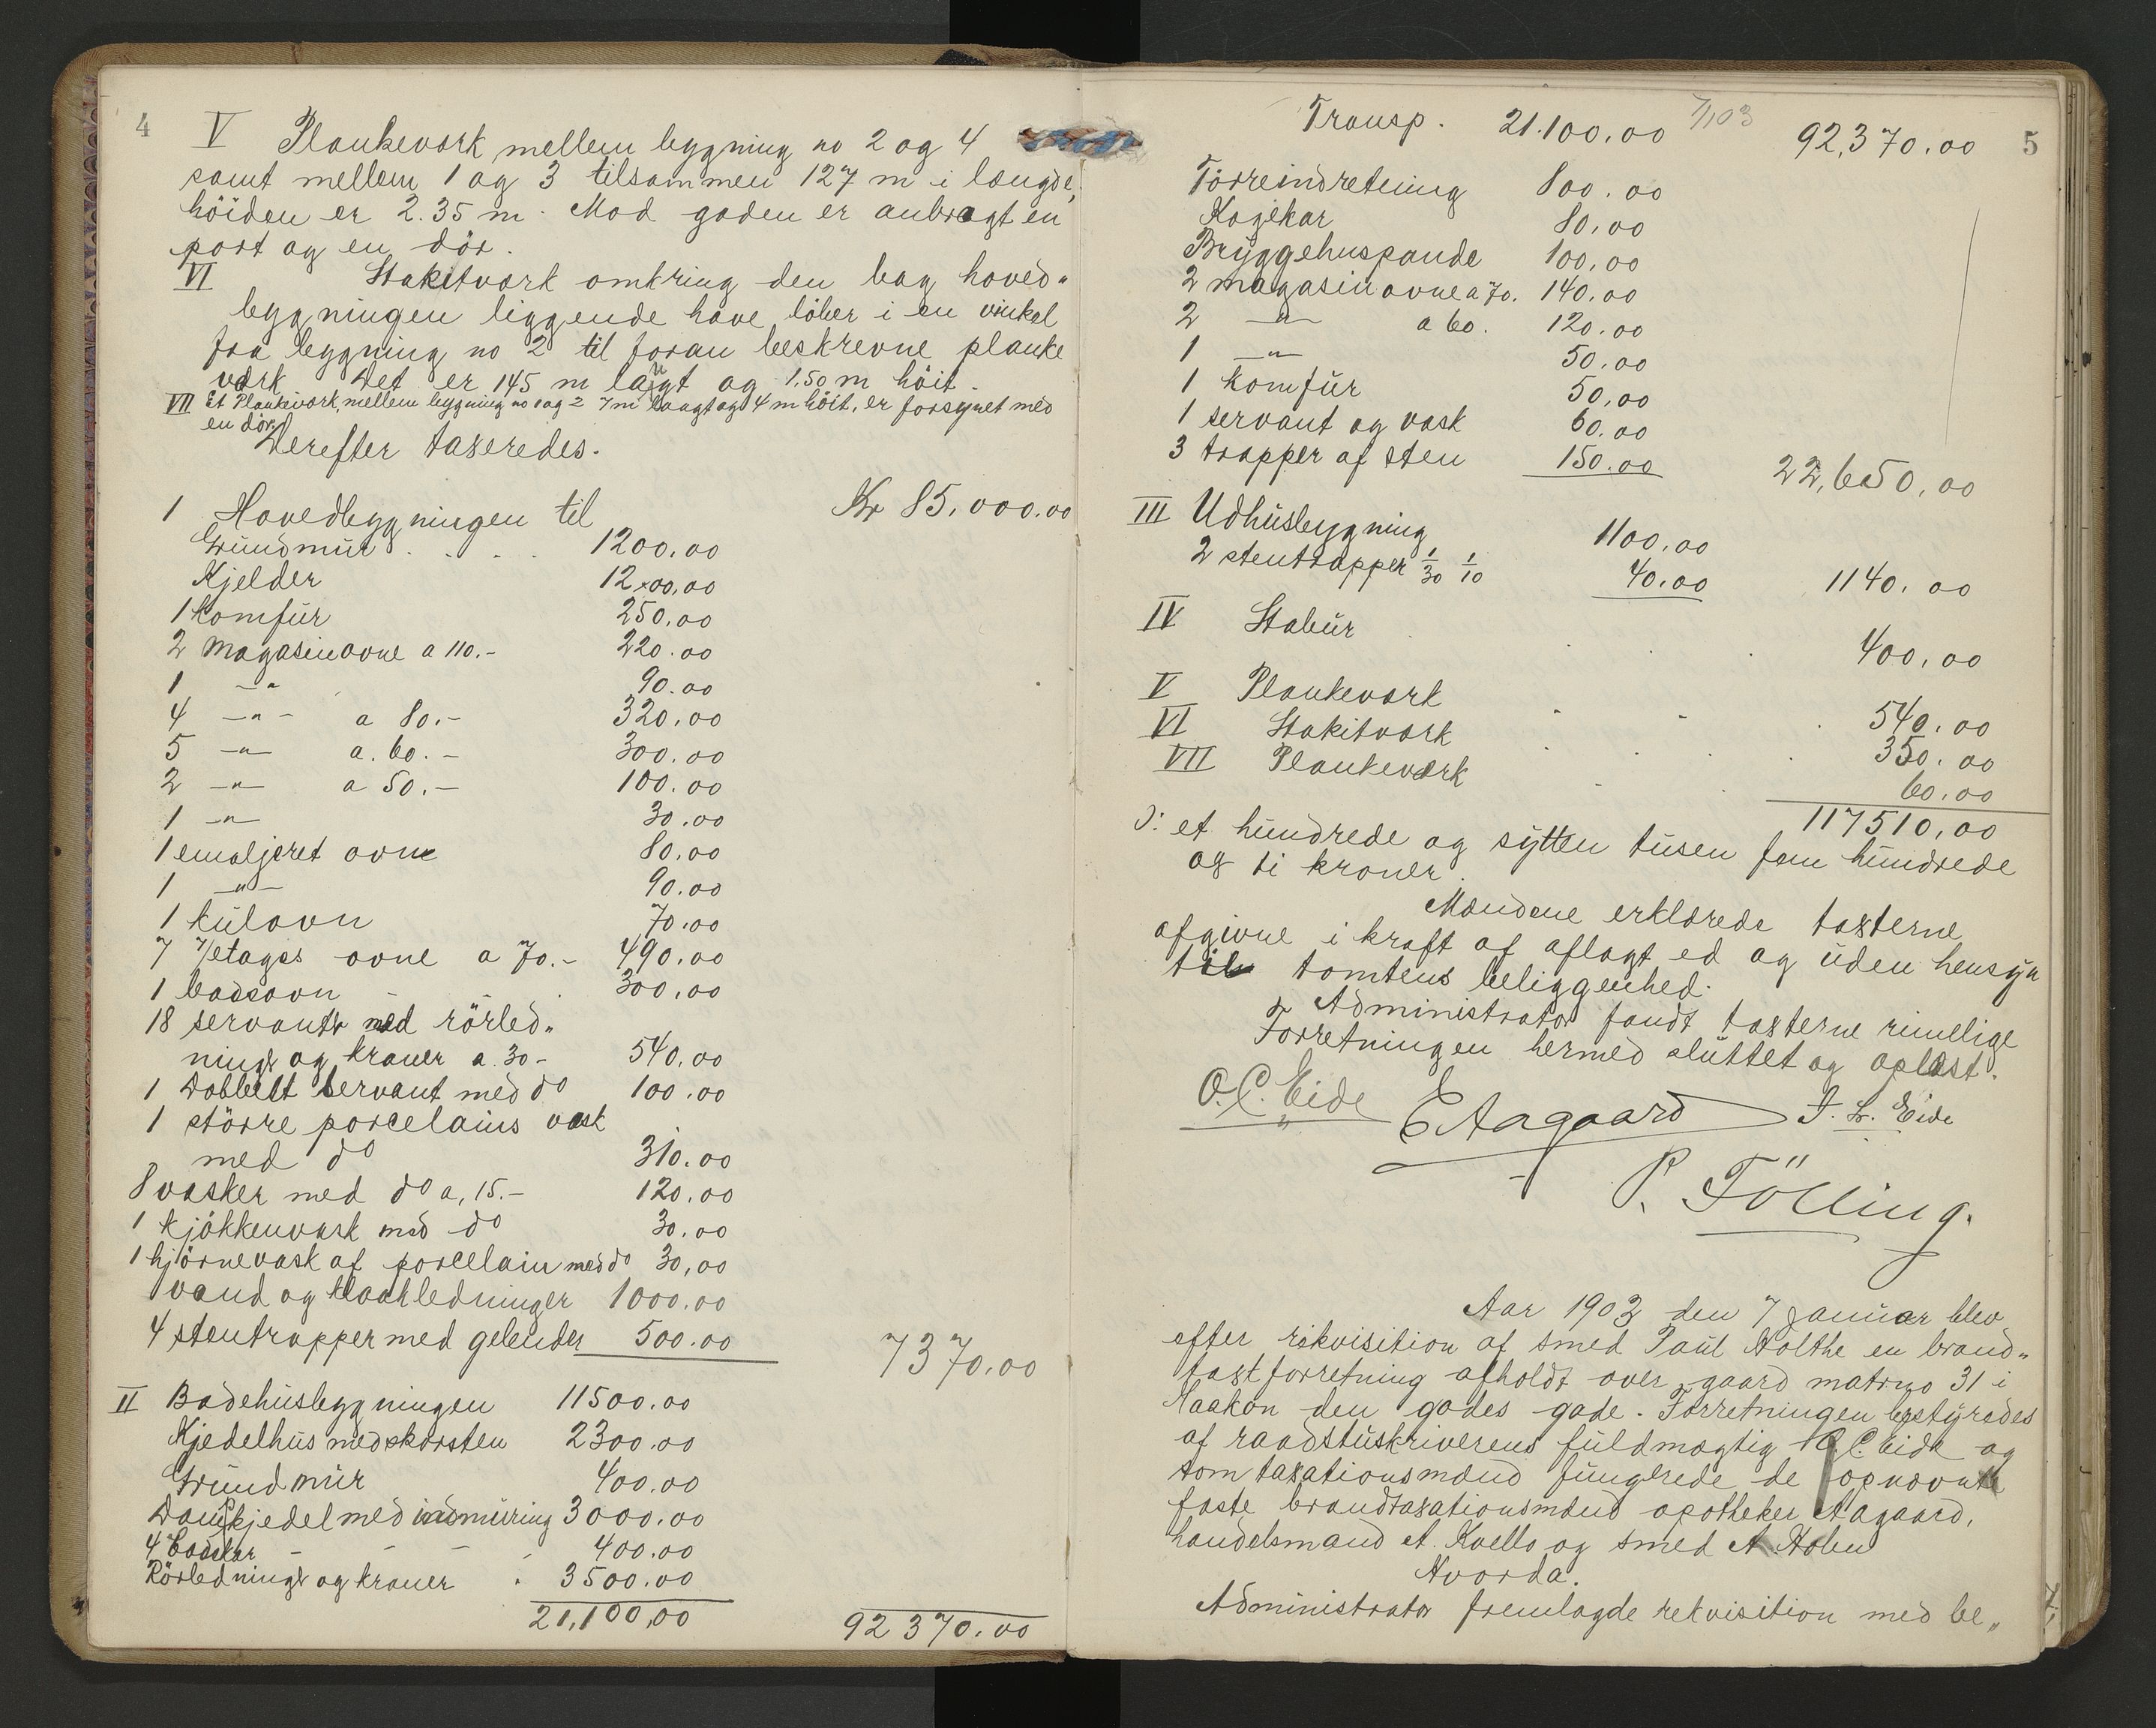 4
V Plankeværk mellem bygning no 2 og 4
samt mellem 1 og 3 tilsammen 127 m i længde,
höiden er 2.35 m. Mod gaden er anbragt en
port og en dör.
VI Stakitværk omkring den bag hoved„
bygningen liggende have löber i en vinkel
fra bygning no 2 til foran beskrevne planke
værk Det er 145 m langt og 1,50 m höit.
VII Et Plankeværk, mellem bygning no 1 og 2 7 m langt og 4 m höit, er forsynet med
en dör,
Derefter taxeredes.
1 Hovedbyggningen til Kr 85,000.00
Grundmur . . . . 1200,00
Kjelder 1200,00
1 Komfur 250,00
2 Magasinovne a 110.- 220.00
1 -„- 90.00
4 -„- a 80.- 320,00
5 -„- a. 60.- 300.00
2 -„- a 50.- 100.00
1 -„- 30.00
1 emaljeret ovn 80,00
1 -„- 90.00
1 kulovn 70.00
7 7/etages ovne a 70.- 490.00
1 badeovn - - . 300,00
18 servanter med rörled„
ninger og kraner a 30- 540,00
1 Dobbelt servant med do 100.00
1 större porcelains vask
med do 310.00
8 vasker med do a, 15.- 120,00
1 kjökkenvask med do 30,00
1 hjörnevask af porcelain med do 30,00
vand og kloakledninger 1000.00
4 stentrapper med gelender 500.00 7370.00
II Badehusbyggningen 11500.00
Kjedelhus med skorsten 2300.00
Grundmur 400.00
Dampkjedel med indmuring 3000.00
4 badekar - - - - 400.00
Rörledninger og kraner . 3500.00
21,100,00 92370.00
5
Transp. 21.100,00 7/1 03 92,370.00
Törreindretning 800.00
Kogekar 80,00
Bryggehuspande 100,00
2 magasinovne a 70. 140.00
2 -„- a 60. 120.00
1 -„- 50.00
1 komfur 50,00
1 servant og vask 60.00
3 trapper af sten 150.00 22,650,00
III Udhusbygning 1100,00
2 stentrapper 1/30 1/10 40,00 1140.00
IV Stabur . . . 400,00
V Plankeværk . . . 540.00
VI Stakitværk . . . 350.00
VII Plankeværk . . 60,00
117510,00
ɔ: et hundrede og sytten tusen fem hundrede
og ti kroner.
Mændene erklærede taxterne
afgivne i kraft af aflagt ed og uden hensyn
til tomtens beliggenhed.
Administrator fandt taxterne rimellige
Forretningen hermed sluttet og oplæst.
O.C. Eide E Aagaard J. L. Eide
P. Fölling.
Aar 1903 den 7 januar blev
efter rekvisition af smed Paul Holthe en brand„
taxtforretning afholdt over gaard matr no 31 i
Haakon den godes gade. Forretningen bestyredes
af raadstuskriverens fuldmægtig O.C. Eide og
som taxationsmænd fungerede de opnævnte
faste brandtaxationsmænd apotheker Aagaard,
handelsmand A. Kvello og smed A. Holen
Hvorda.
Administrator fremlagde rekvisition med be„